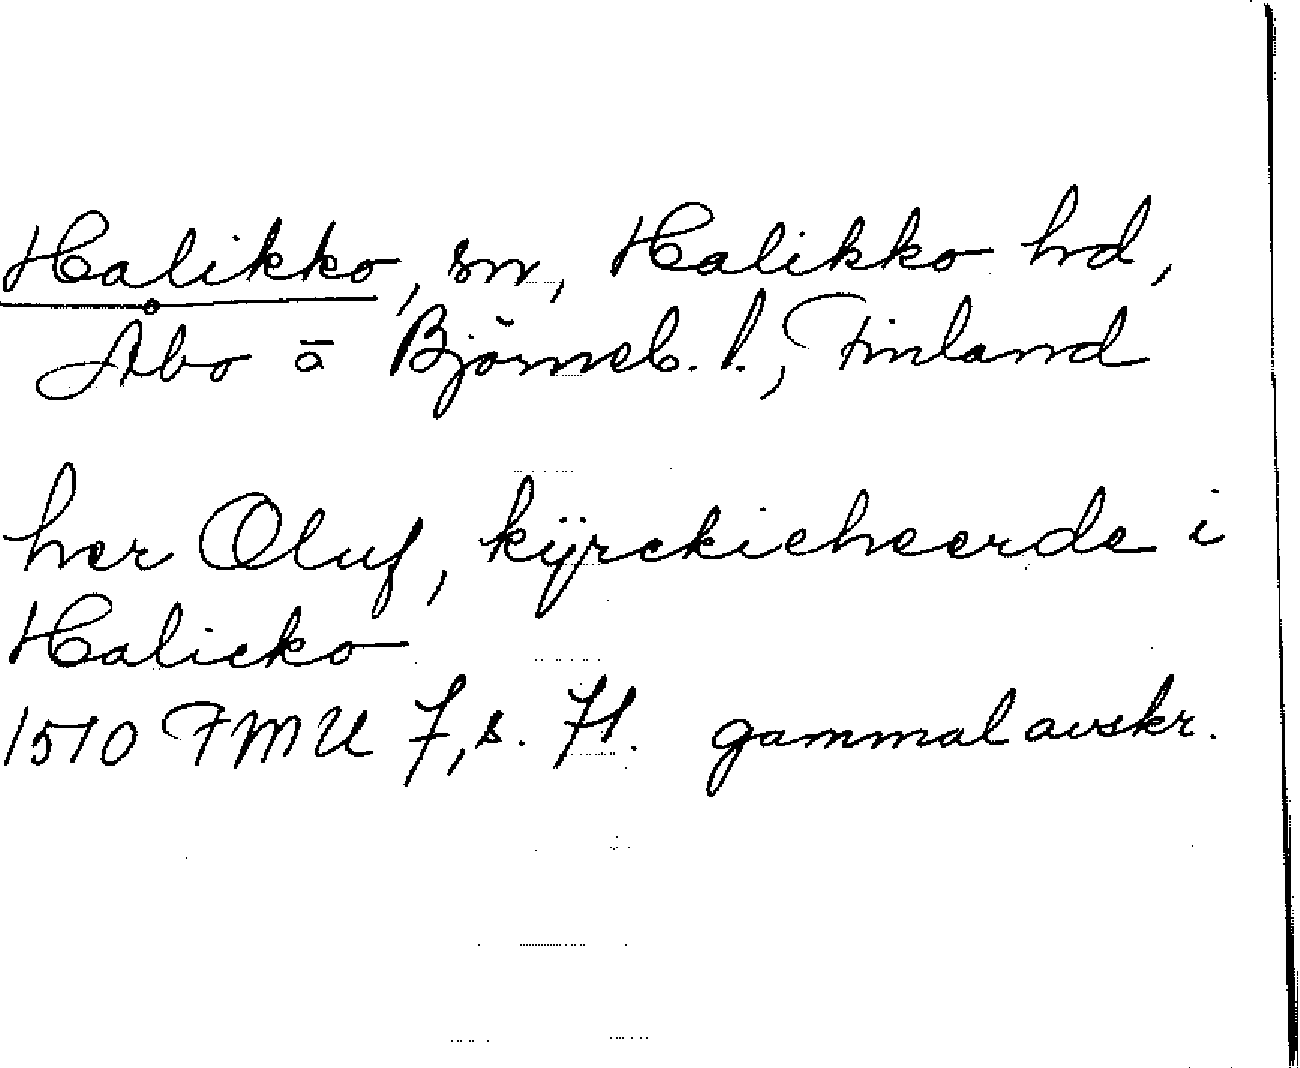 Halikko, sn, Halikko hd,
Åbo o Björneb. l., Finland
her Oluf, kÿrckieheerde i
Halicko
1510 FMU 7, s. 71. gammal avskr.